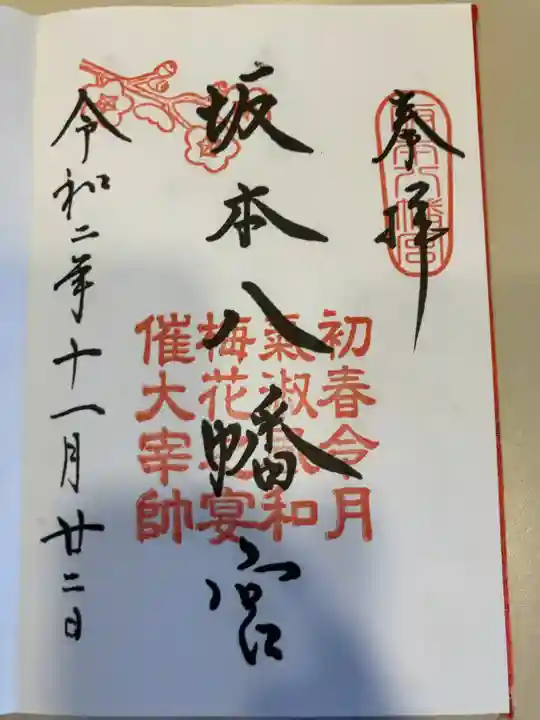 奉拝
坂本八幡宮
初春令月
氣淑風和
梅花之宴
催大宰帥
令和二年十一月廿二日
坂本八幡宮